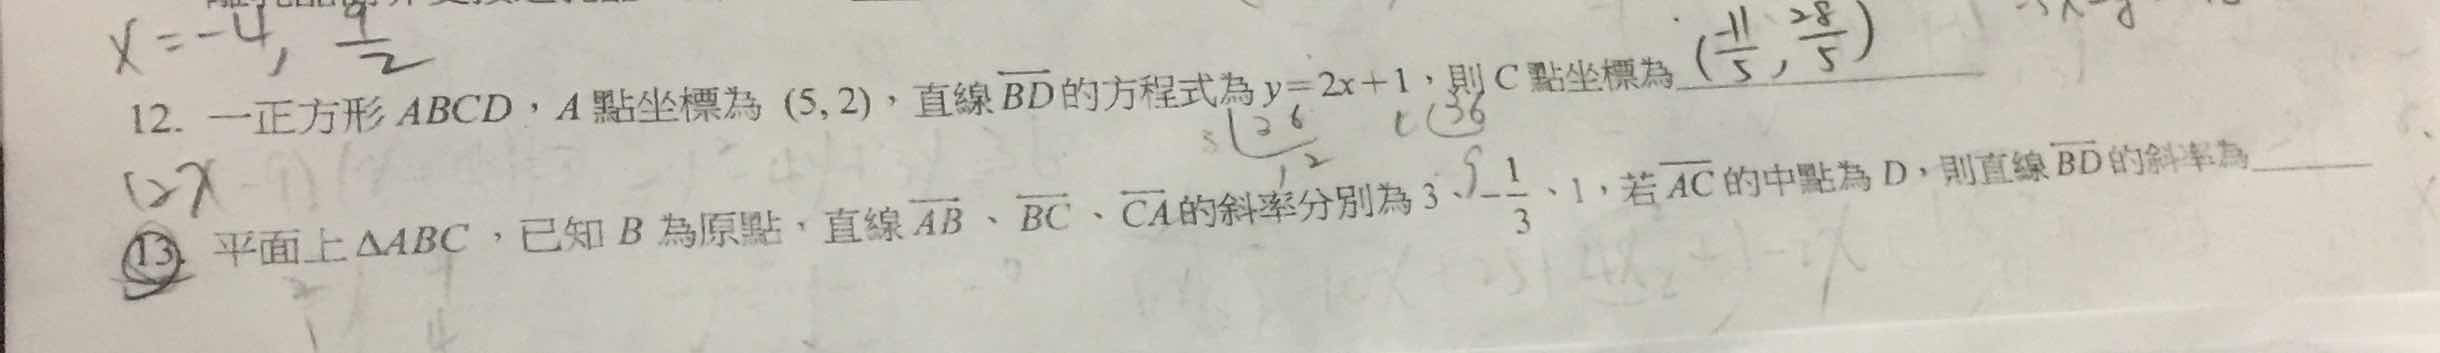 x=-4, 9/2
12. 一正方形 ABCD,A 點坐標為 (5, 2),直線 BD 的方程式為 y=2x+1,則 C 點坐標為 (-11/5, 28/5)
36
36
12
13. 平面上 ΔABC,已知 B 為原點,直線 AB、BC、CA 的斜率分別為 3、-1/3、1,若 AC 的中點為 D,則直線 BD 的斜率為